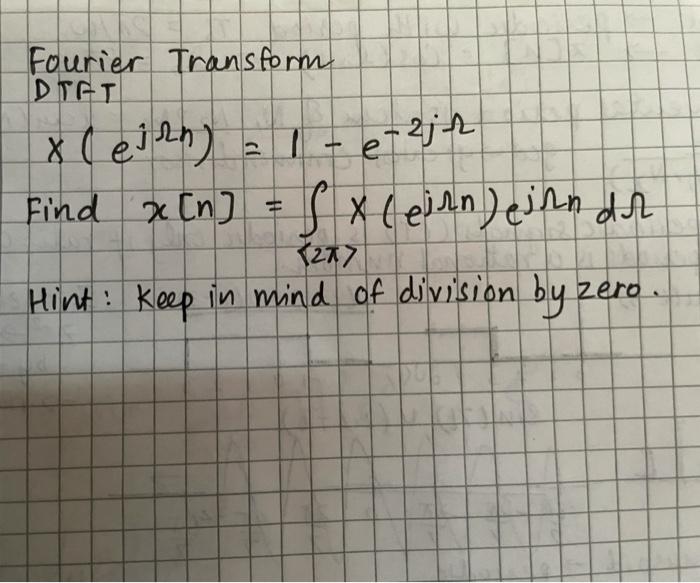 Fourier Transform
DTFT
X(e^{jΩn}) = 1 - e^{-2jΩ}
Find x[n] = ∫_{<2π>} X(e^{jΩn}) e^{jΩn} dΩ
Hint: Keep in mind of division by zero.